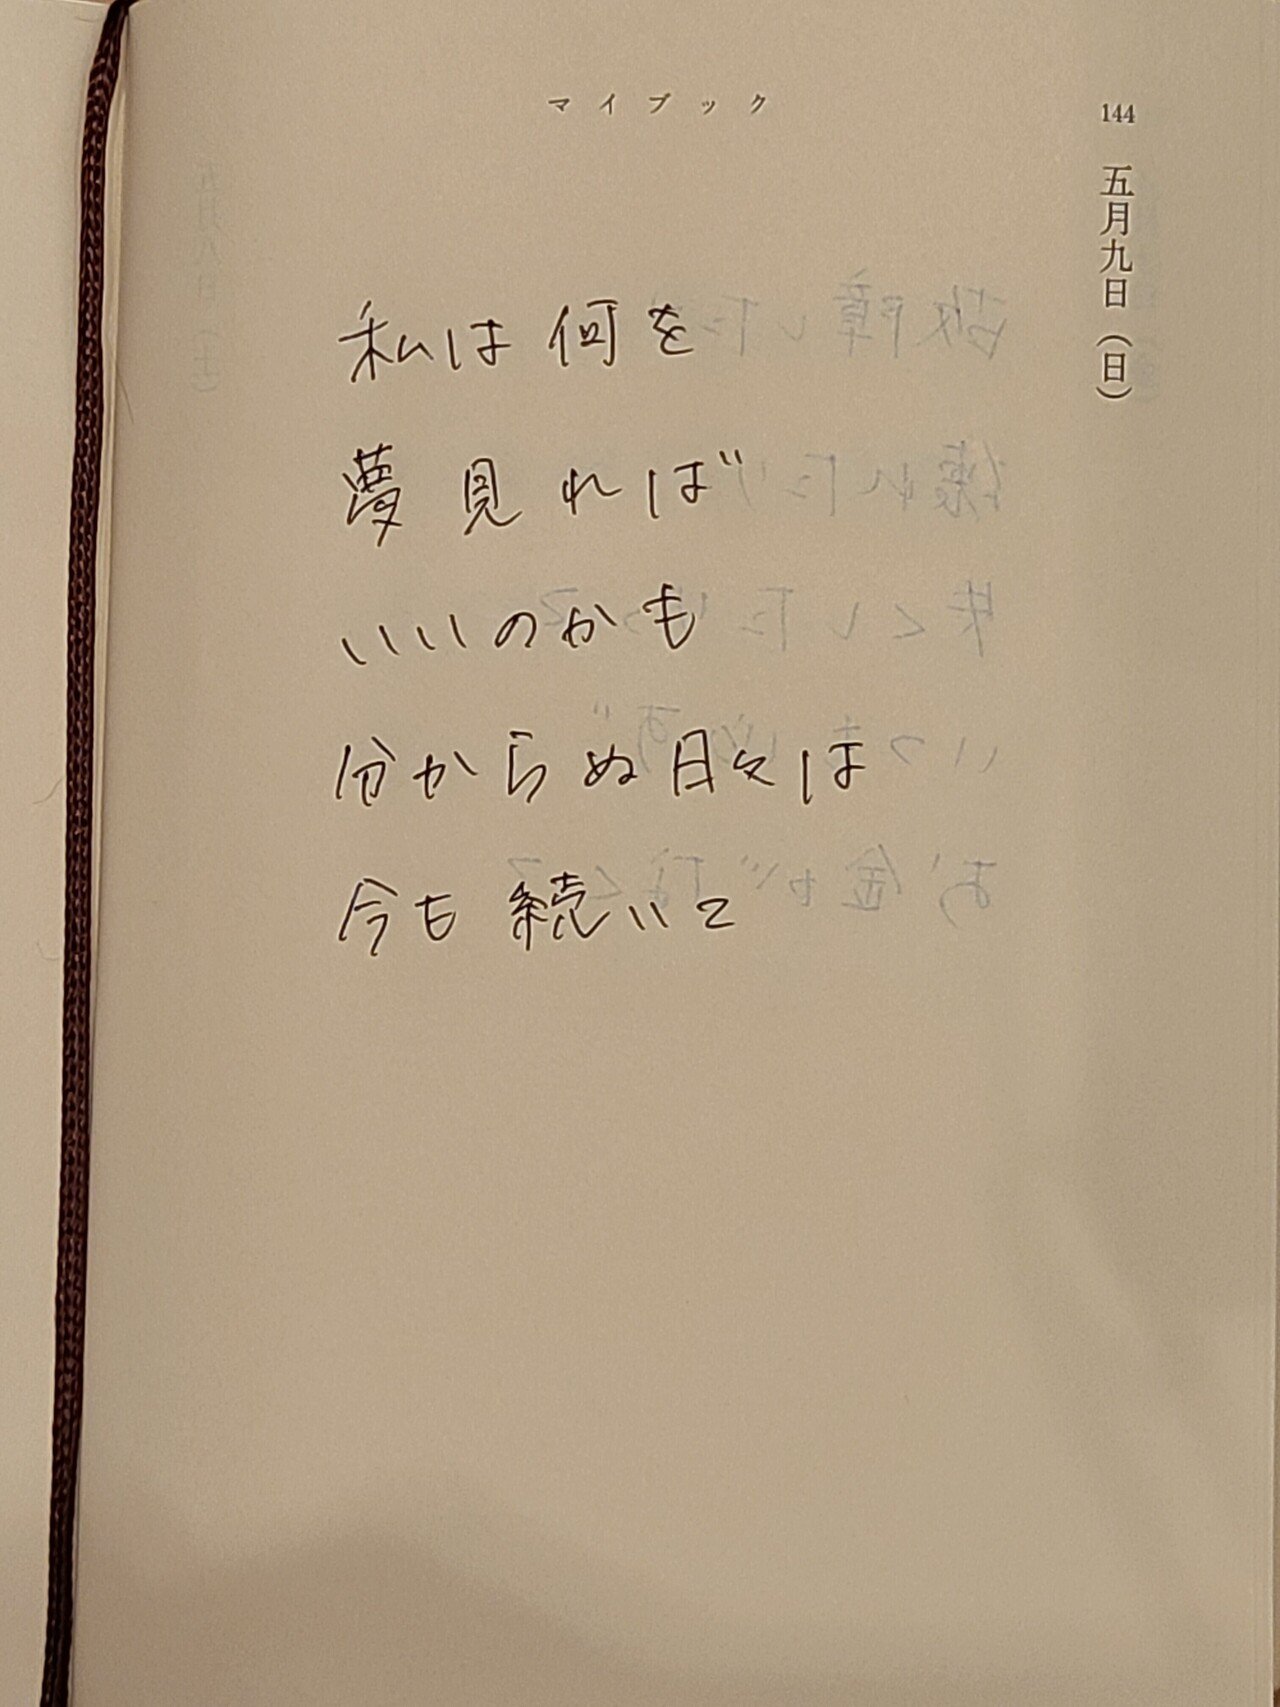 マイブック
144
五月九日(日)
私は何を
夢見れば
いいのかも
分からぬ日々は
今も続いて